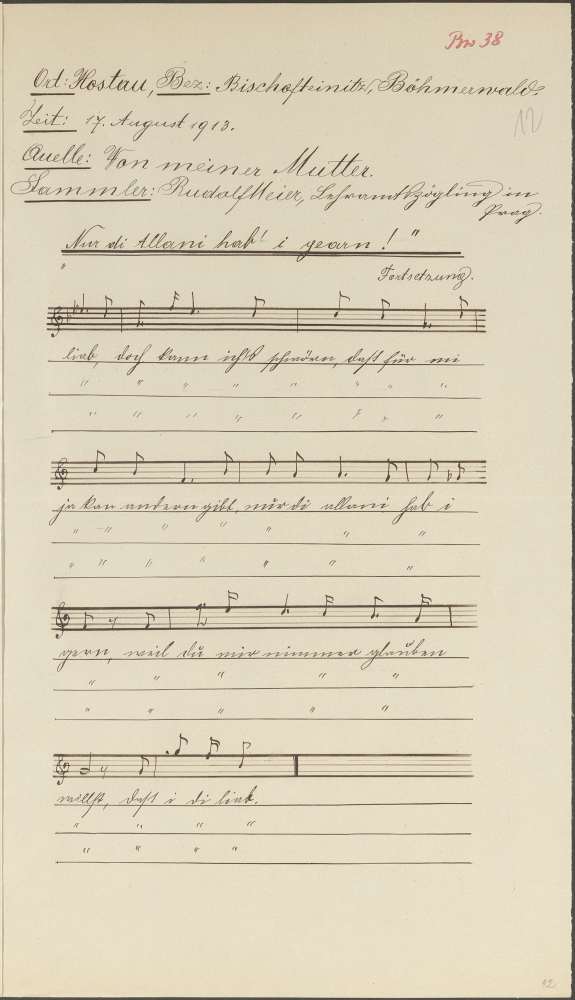 Bw 38
Ort: Hostau, Bez: Bischofteinitz, Böhmerwald
12
Zeit: 17. August 1913.
Quelle: Von meiner Mutter.
Sammler: Rudolf Meier, Lehramtszögling in
Prag.
„Nur di allani hab' i gearn!"
Fortsetzung.
lieb, doch kann ich's schwörn, daß für mi
" " " " " " " "
" " " " " " " "
ja kan andern gibt, nur di allani hab i
" " " " " " "
" " " " " " "
gern, weil du mir nimmer glauben
" " " " "
" " " " "
willst, daß i di lieb.
" " " "
" " " "
12